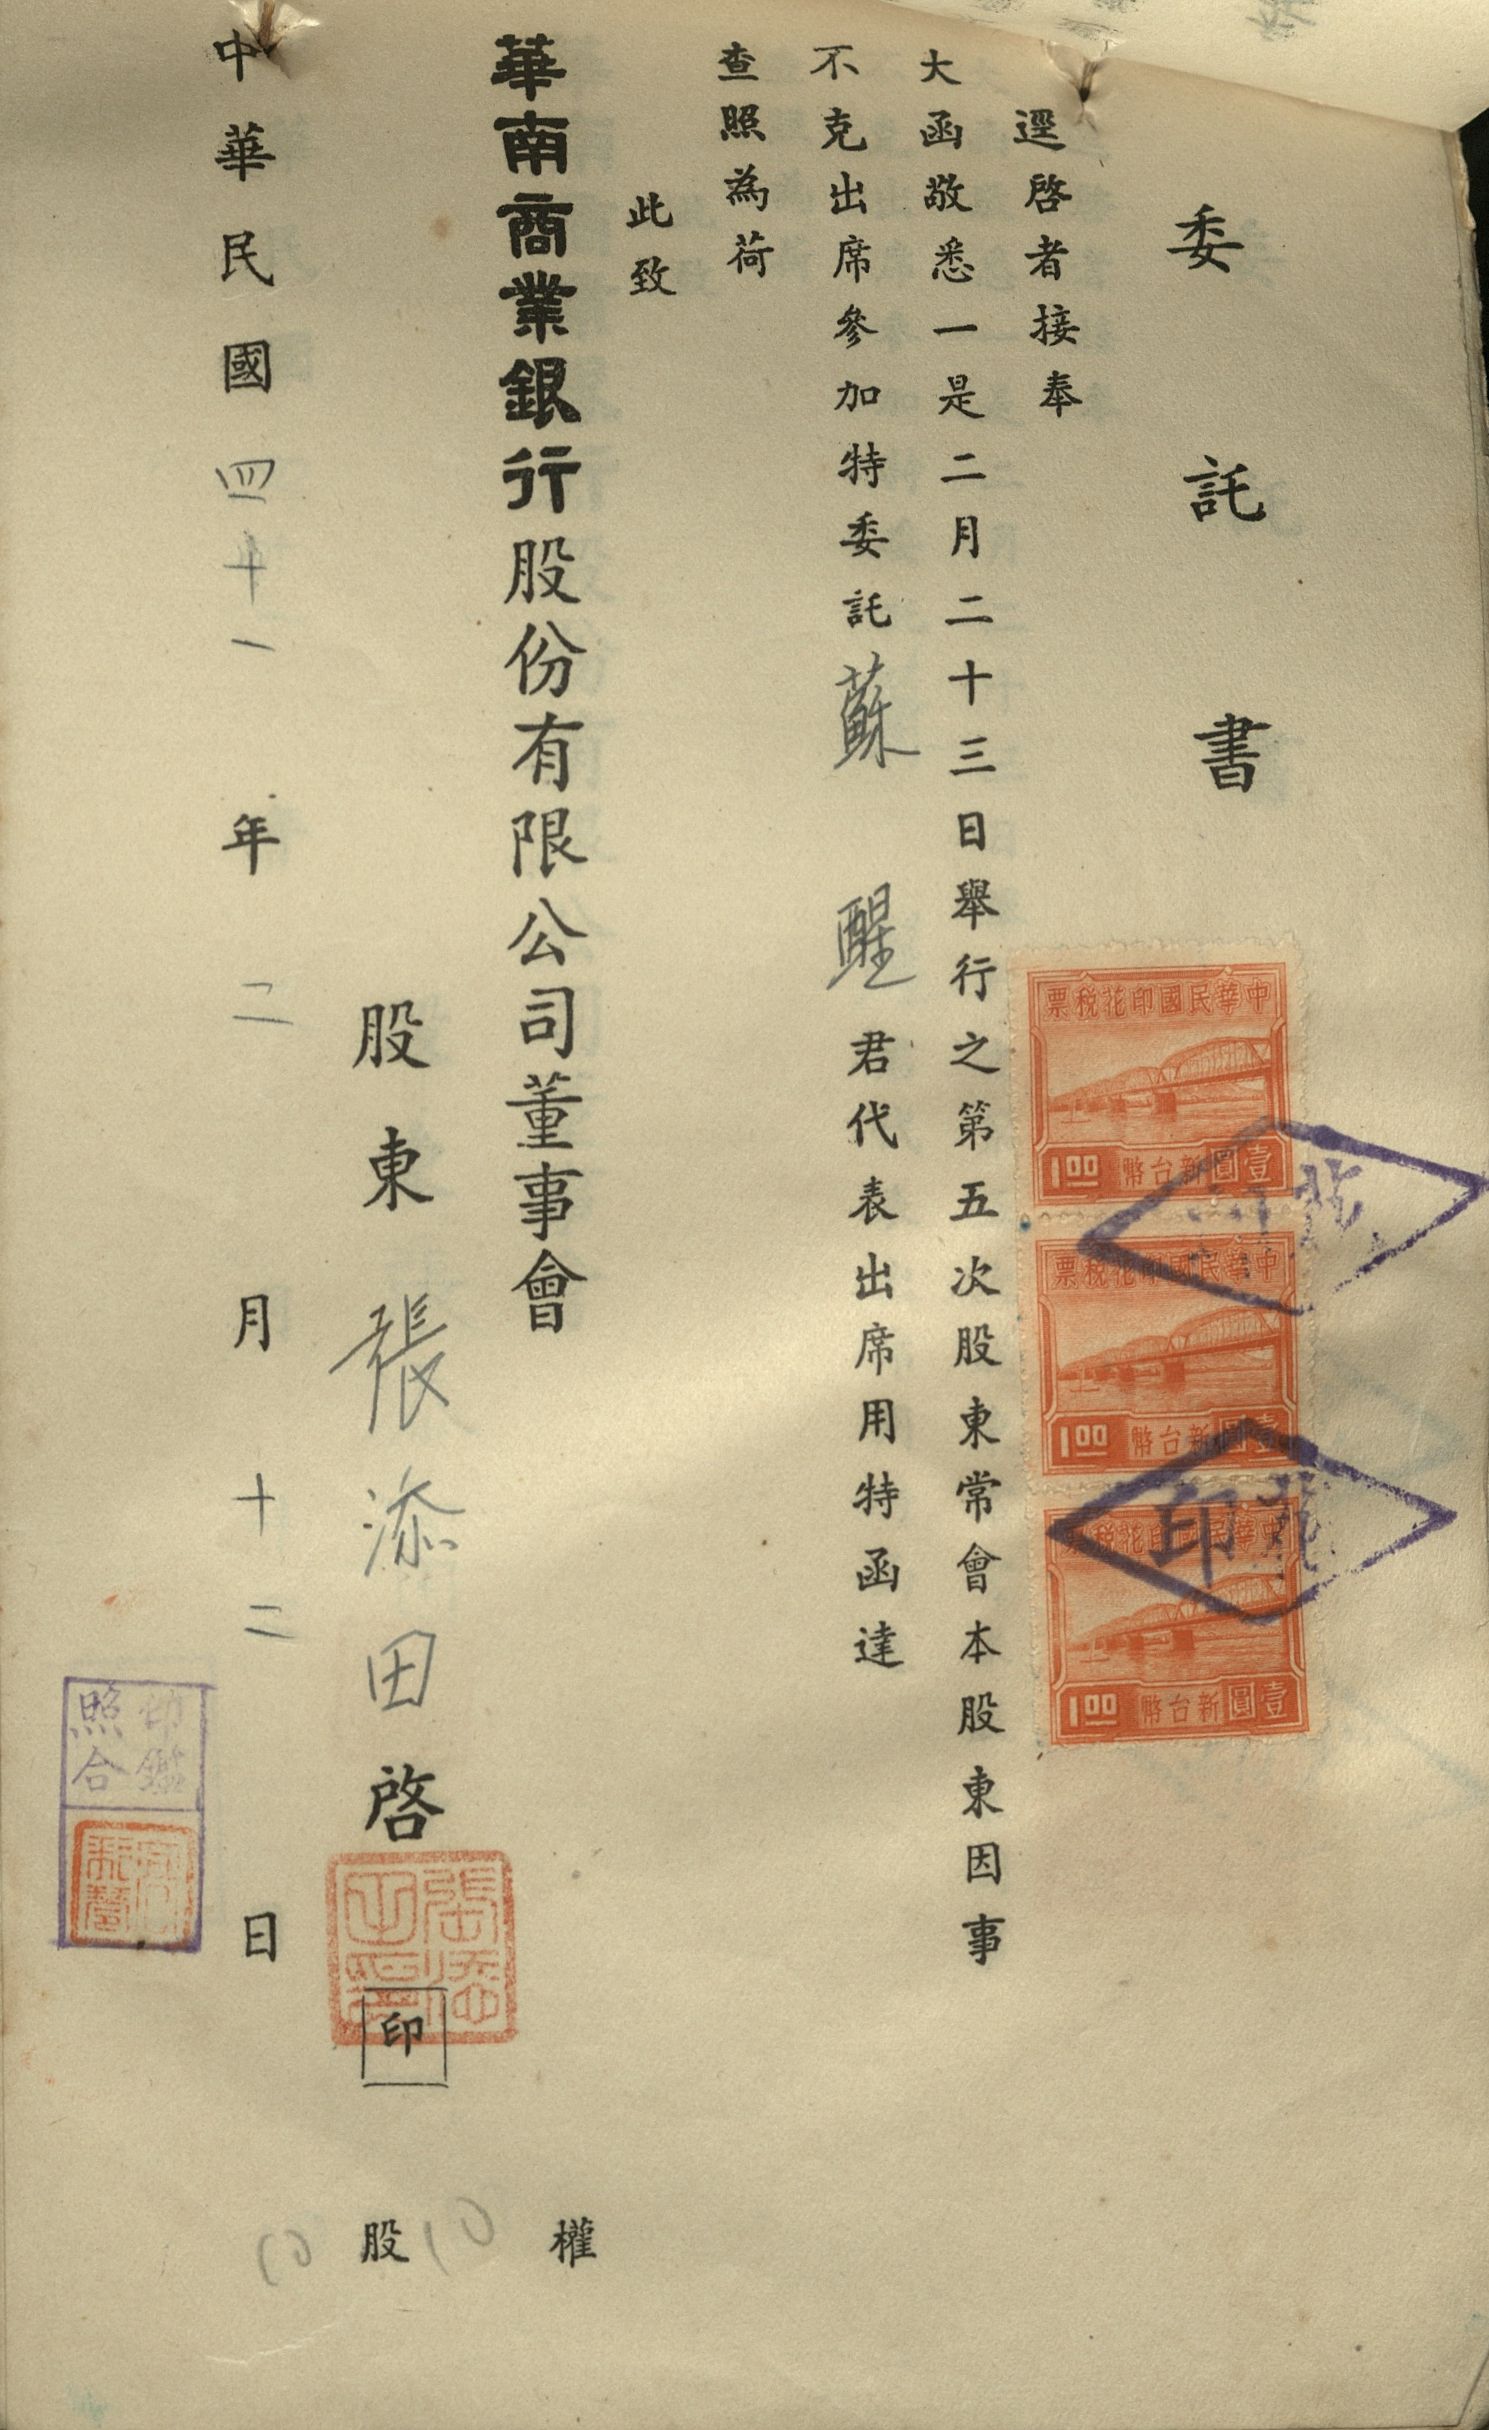 委託書
逕啓者接奉
大函敬悉一是二月二十三日舉行之第五次股東常會本股東因事
不克出席參加特委託蘇醒君代表出席用特函達
查照為荷
此致
華南商業銀行股份有限公司董事會
股東張添田啓
印
中華民國四十一年二月十二日
權
股
中華民國印花稅票
壹圓新台幣
1.00
中華民國印花稅票
壹圓新台幣
1.00
中華民國印花稅票
壹圓新台幣
1.00
印
印鑑
照合